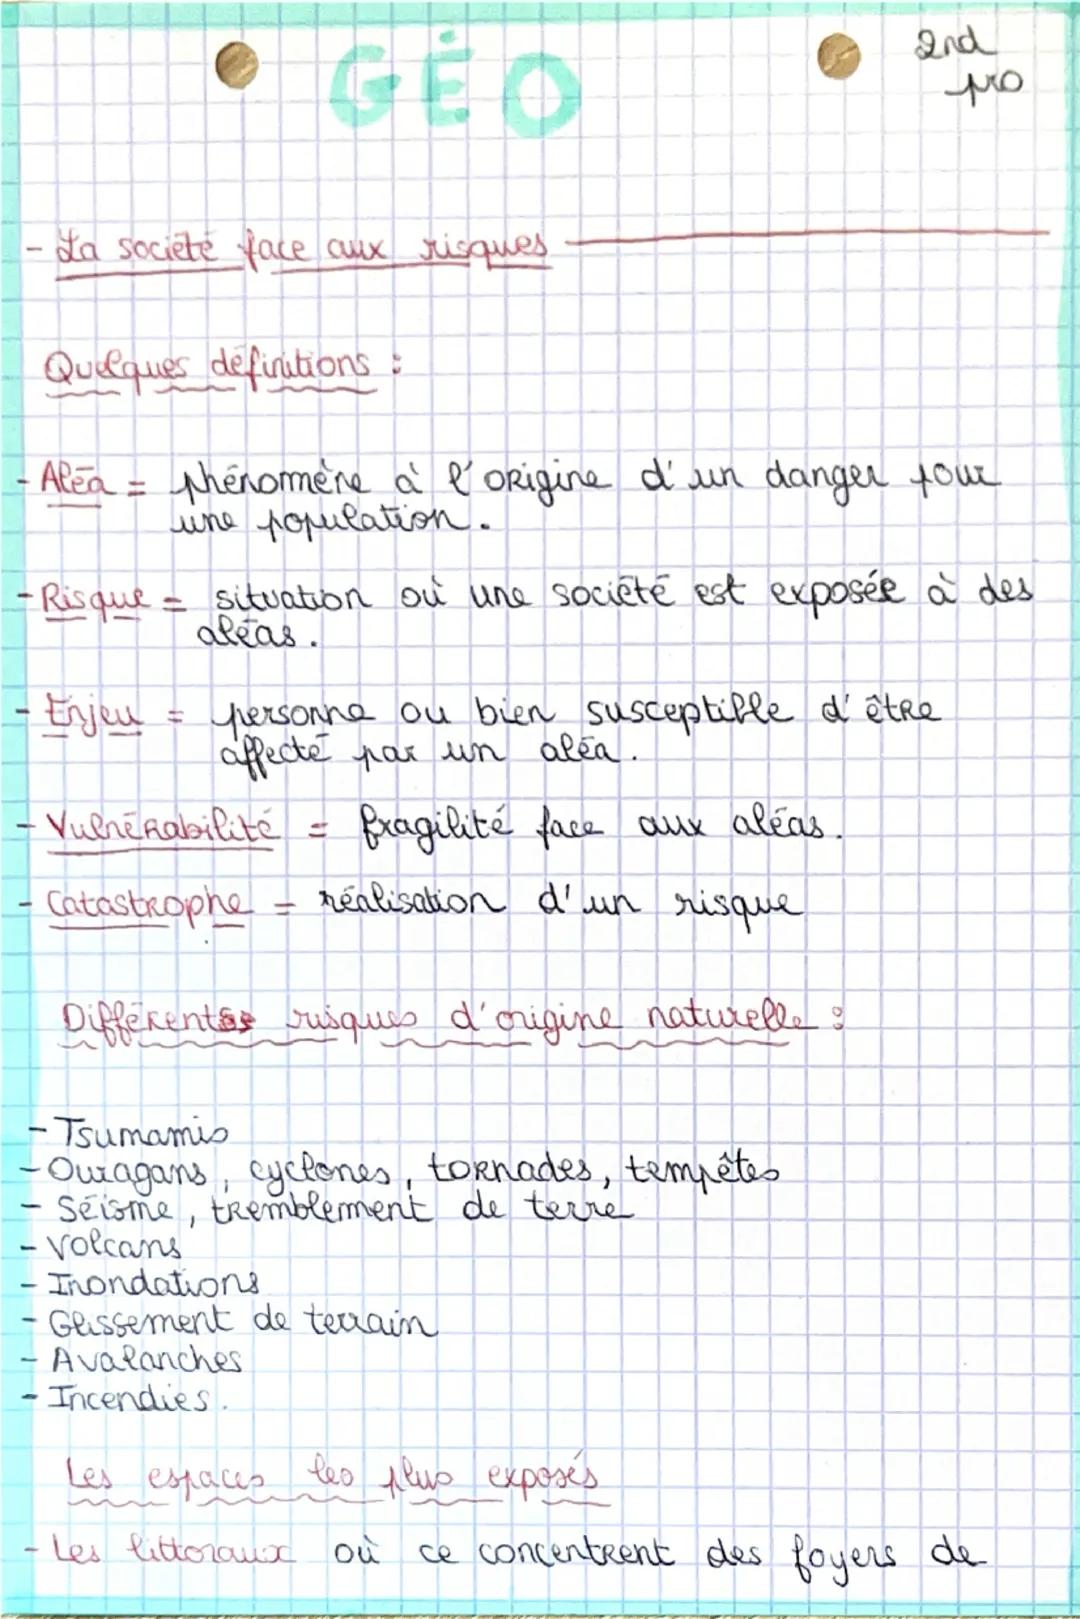 GÉO
2nd
pro
- La société face aux risques
Quelques définitions :
- Aléa = phénomène à l'origine d'un danger pour
une population.
- Risque = situation où une société est exposée à des
aléas.
- Enjeu = personne ou bien susceptible d'être
affecté par un aléa.
- Vulnérabilité = fragilité face aux aléas.
- Catastrophe = réalisation d'un risque
Différents risques d'origine naturelle :
- Tsumamis
- Ouragans, cyclones, tornades, tempêtes
- Séisme, tremblement de terre
- Volcans
- Inondations
- Glissement de terrain
- Avalanches
- Incendies.
Les espaces les plus exposés
- Les littoraux où ce concentrent des foyers de